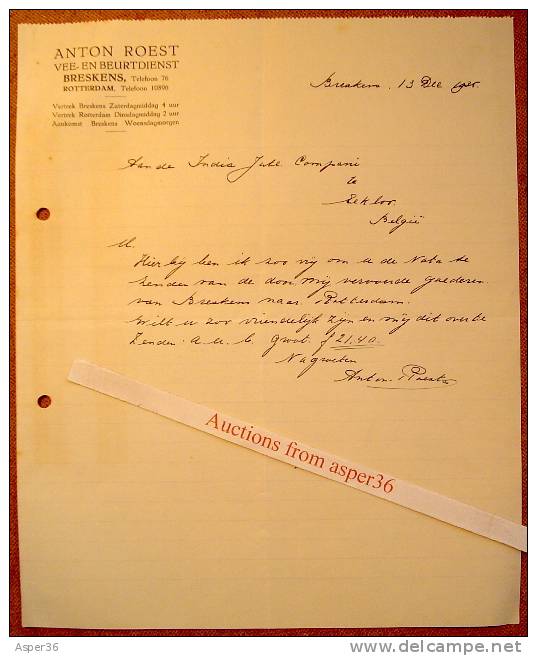 ANTON ROEST
VEE- EN BEURTDIENST
BRESKENS, Telefoon 76
ROTTERDAM, Telefoon 10896
Vertrek Breskens Zaterdagmiddag 4 uur
Vertrek Rotterdam Dinsdagmiddag 2 uur
Aankomst Breskens Woensdagmorgen
Breskens, 13 Dec
Aan de India Jute Compani
te
Eekloo
België
M.
Hierbij ben ik zoo vrij om u de Nota te
zenden van de door mij vervoerde goederen
van Breskens naar Rotterdam.
Wilt u zoo vriendelijk zijn en mij dit over te
zenden A.u.b. groot f 21.40.
Na groeten
Anton Roest
Auctions from asper36
Asper36
www.delcampe.net